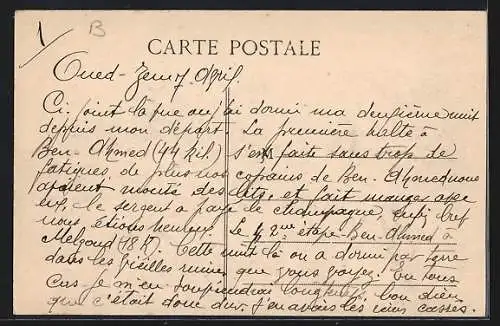 1
B
CARTE POSTALE
Oued-Zem 7 April.
Ci joint la vue où j'ai dormi ma deuxième nuit
depuis mon départ. La première halte à
Ben-Ahmed (44 kil.) s'est faite sans trop de
fatigues, de plus nos copains de Ben-Ahmed nous
avaient monté des lits, et fait manger
le sergent a payé le champagne, enfin bref
nous étions heureux. Le 2me étape Ben-Ahmed à
Melgoud (18 K). Cette nuit là on a dormi par terre
dans les vieilles ruines que vous voyez. En tous
cas je m'en souviendrai longtemps, bon dieu
que c'était donc dur. J'en avais les reins cassés.